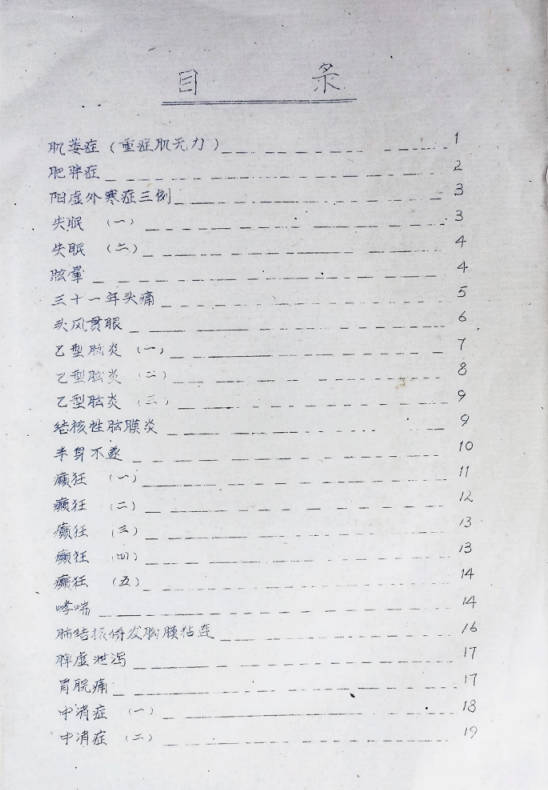 目 录
肌萎症（重症肌无力） 1
肥胖症 2
阳虚外寒症三例 3
失眠 （一） 3
失眠 （二） 4
眩晕 4
三十一年头痛 5
头风贯眼 6
乙型脑炎（一） 7
乙型脑炎（二） 8
乙型脑炎（三） 9
结核性脑膜炎 9
半身不遂 10
癫狂 （一） 11
癫狂 （二） 12
癫狂 （三） 13
癫狂 （四） 13
癫狂 （五） 14
哮喘 14
肺结核并发胸膜粘连 16
脾虚泄泻 17
胃脘痛 17
中消症 （一） 18
中消症 （二） 19